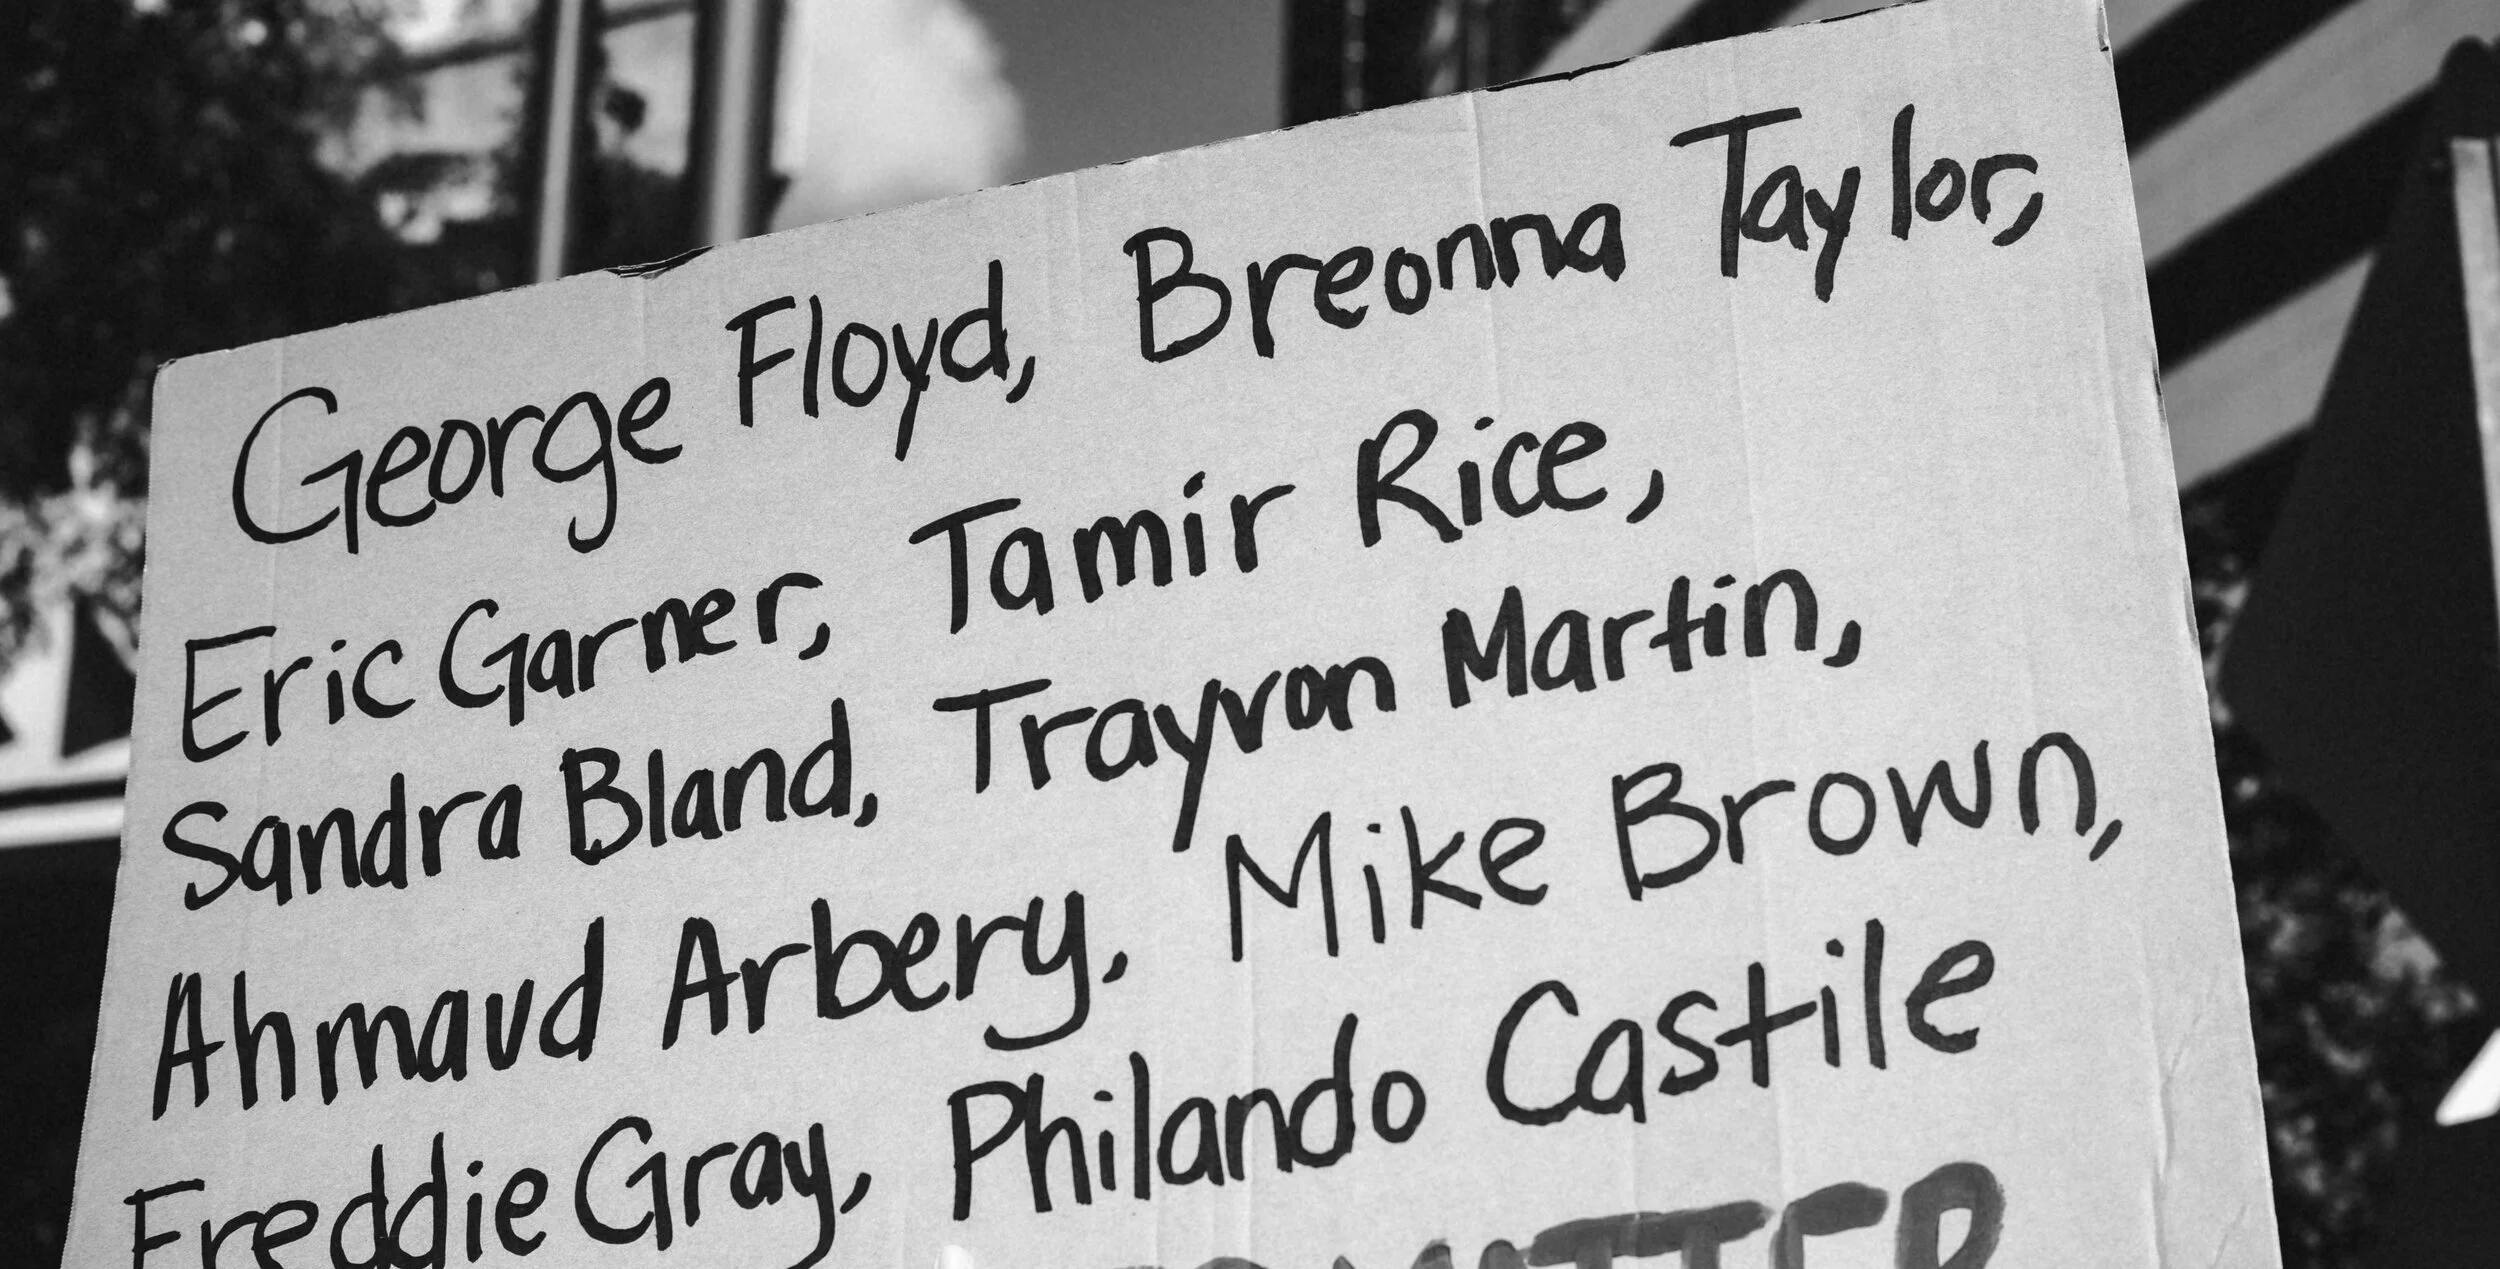 George Floyd, Breonna Taylor,
Eric Garner, Tamir Rice,
Sandra Bland, Trayvon Martin,
Ahmaud Arbery, Mike Brown,
Freddie Gray, Philando Castile